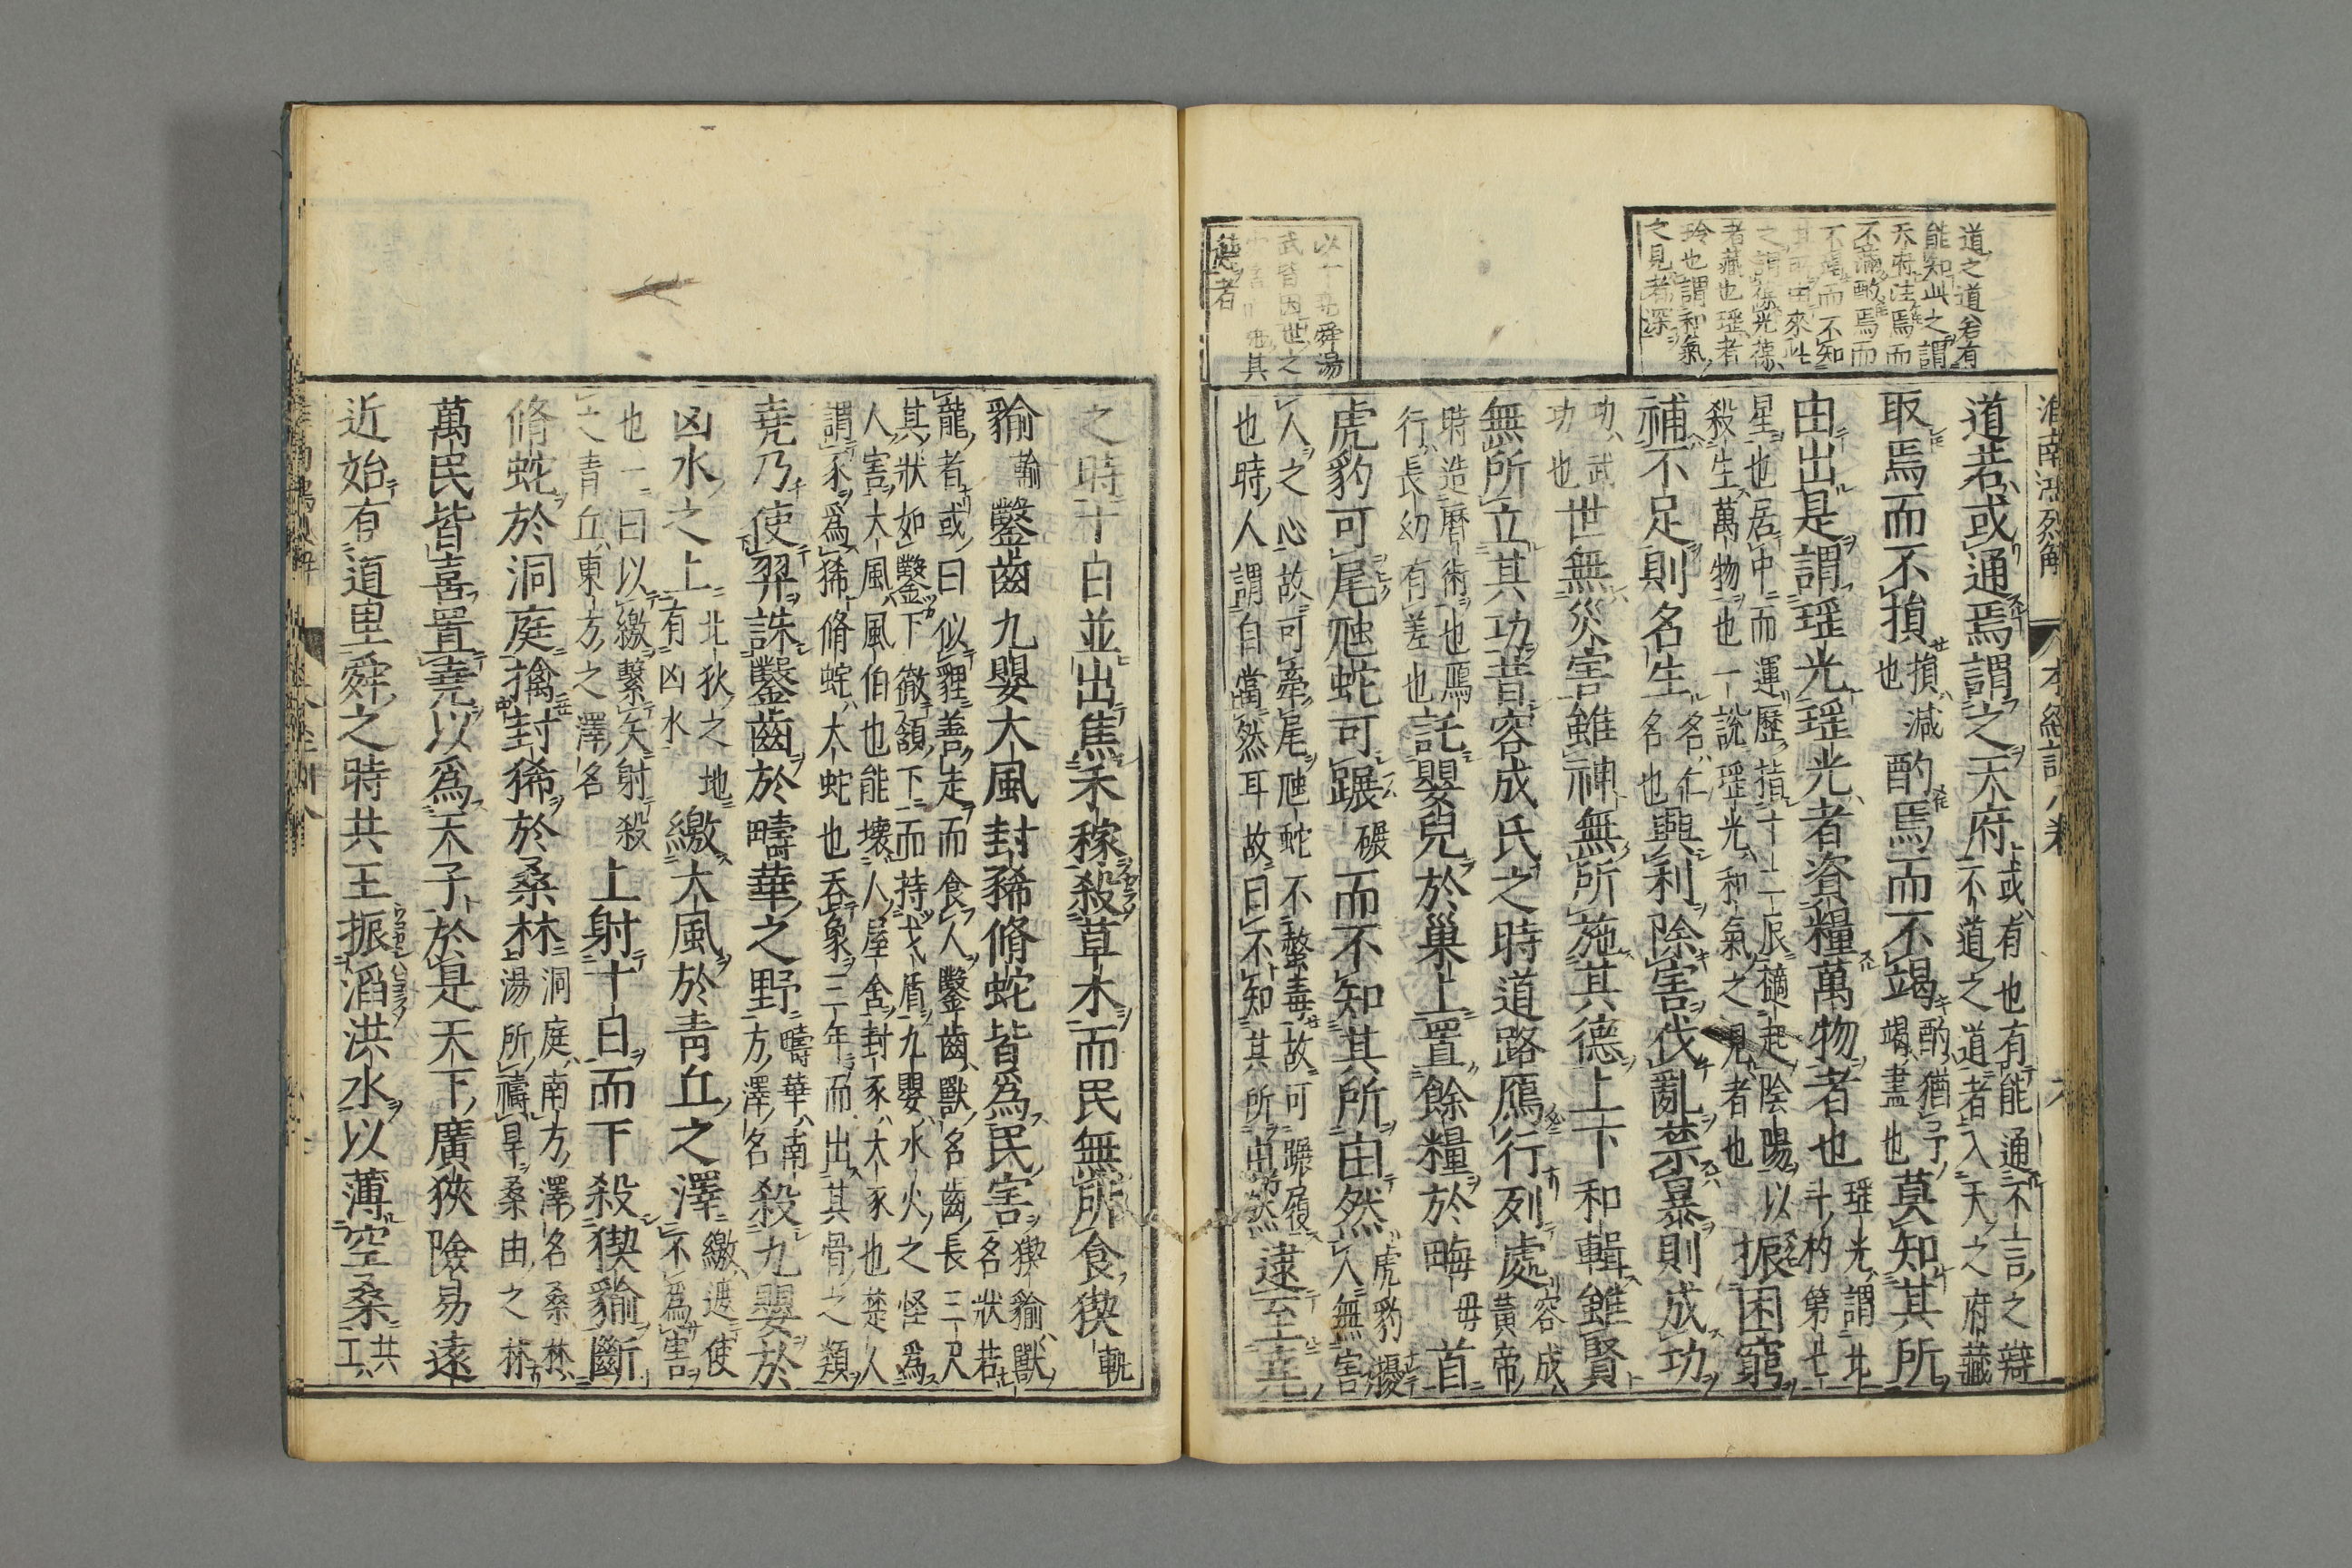 淮南鴻烈解 本經訓八卷 六
道之道若有
能知此之謂
天府注焉而
不滿酌焉而
不竭而不知
其所由來此
之謂葆光葆
者藏也瑶者
玲也謂和氣
之見者深
道若或通焉謂之天府或有也有能通不言之辯不道之道者入天之府藏
取焉而不損損減也酌焉而不竭酌猶予竭盡也莫知其所
由出是謂瑶光瑶光者資糧萬物者也瑶光謂北斗杓第七
星也居中而運歷指十二辰擿起陰陽以殺生萬物也一說瑶光和氣之見者也振困窮
補不足則名生名仁名也興利除害伐亂禁暴則成功
功武功也世無災害雖神無所施其德上下和輯雖賢
無所立其功昔容成氏之時道路鴈行列處容成黃帝
時造曆術也鴈行長幼有差也託嬰兒於巢上置餘糧於畮毋首
虎豹可尾虺蛇可蹍碾而不知其所由然虎豹擾人無害
人之心故可牽尾虺蛇不螫毒故可蹍履也時人謂自當然耳故曰不知其所由然逮至堯
以下堯舜湯
武皆因世之
其
德者
之時十日並出焦禾稼殺草木而民無所食猰軋
貐貐鑿齒九嬰大風封豨脩蛇皆爲民害猰貐獸名狀若
龍者或曰似貍善走而食人鑿齒獸名齒長三尺其狀如鑿下徹頷下而持戈盾九嬰水火之怪爲
人害大風風伯也能壞人屋舍封豕大豕也楚人謂豕爲豨脩蛇大蛇也吞象三年而出其骨之類
堯乃使羿誅鑿齒於疇華之野疇華南方澤名殺九嬰於
凶水之上北狄之地有凶水繳大風於青丘之澤繳遮使不爲害
也一曰以繳繫矢射殺之青丘東方之澤名上射十日而下殺猰貐斷
脩蛇於洞庭擒封豨於桑林洞庭南方澤名桑林湯所禱旱桑由之林
萬民皆喜置堯以爲天子於是天下廣狹險易遠
近始有道里舜之時共工振滔洪水以薄空桑共工